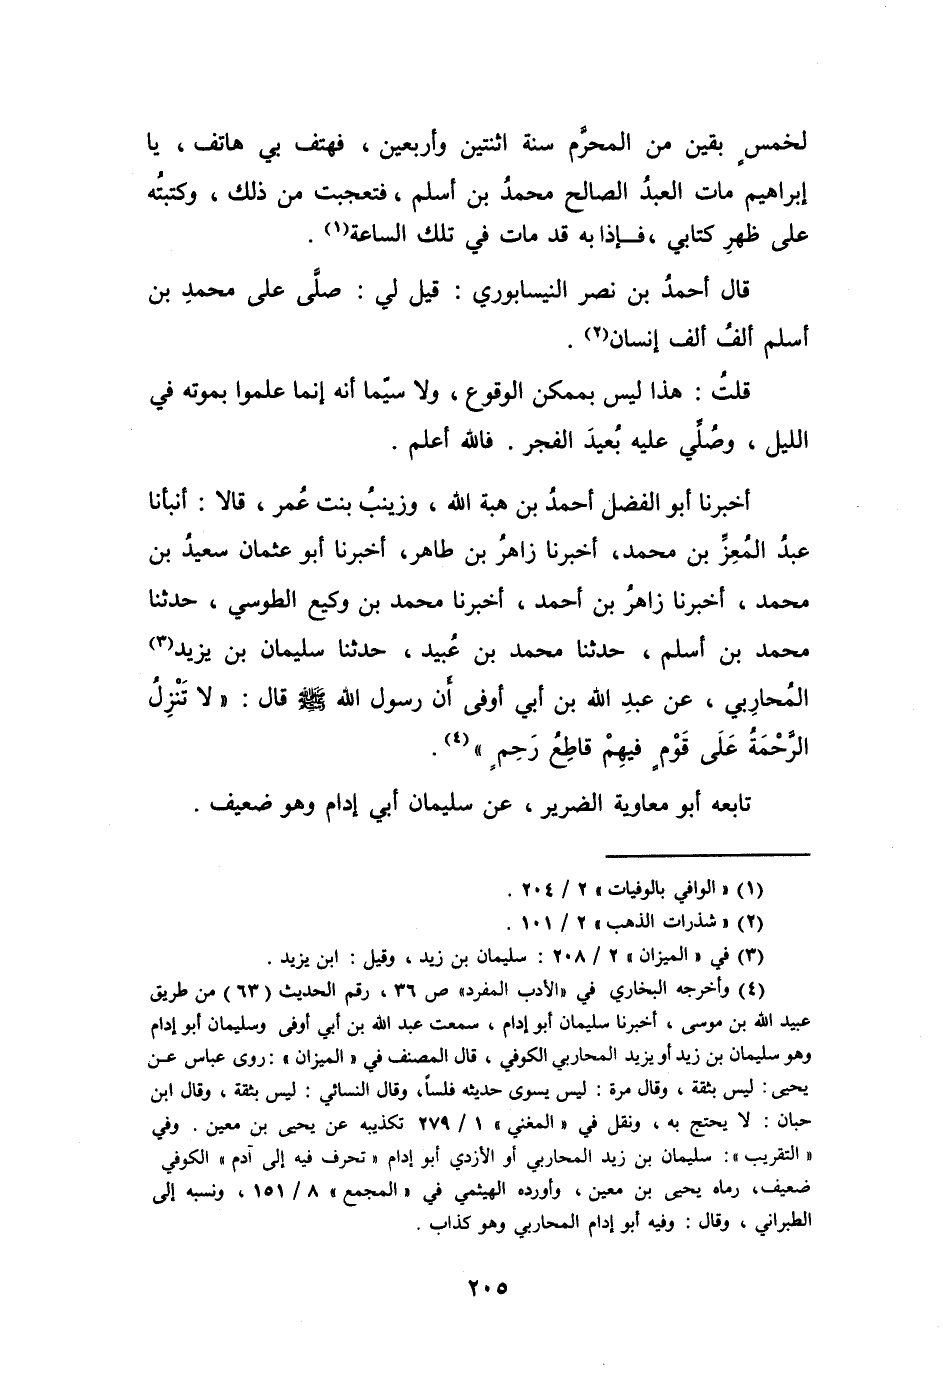 لخمسٍ بقين من المحرَّم سنة اثنتين وأربعين ، فهتف بي هاتف ، يا
إبراهيم مات العبدُ الصالح محمدُ بن أسلم ، فتعجبت من ذلك ، وكتبتُه
على ظهرِ كتابي ، فإذا به قد مات في تلك الساعة(١) .
قال أحمدُ بن نصر النيسابوري : قيل لي : صلَّى على محمدِ بن
أسلم ألفُ ألف إنسان(٢) .
قلتُ : هذا ليس بممكن الوقوع ، ولا سيّما أنه إنما علموا بموته في
الليل ، وصُلِّي عليه بُعيدَ الفجر . فالله أعلم .
أخبرنا أبو الفضل أحمدُ بن هبة الله ، وزينبُ بنت عُمر ، قالا : أنبأنا
عبدُ المُعِزِّ بن محمد، أخبرنا زاهرُ بن طاهر، أخبرنا أبو عثمان سعيدُ بن
محمد ، أخبرنا زاهرُ بن أحمد ، أخبرنا محمد بن وكيع الطوسي ، حدثنا
محمد بن أسلم ، حدثنا محمد بن عُبيد ، حدثنا سليمان بن يزيد(٣)
المُحارِبي ، عن عبدِ الله بن أبي أوفى أَن رسول الله ﷺ قال : « لا تَنْزِلُ
الرَّحْمَةُ عَلَى قَوْمٍ فيهِمْ قاطِعُ رَحِمٍ »(٤) .
تابعه أبو معاوية الضرير ، عن سليمان أبي إدام وهو ضعيف .
(١) « الوافي بالوفيات » ٢ / ٢٠٤ .
(٢) « شذرات الذهب » ٢ / ١٠١ .
(٣) في « الميزان » ٢ / ٢٠٨ : سليمان بن زيد ، وقيل : ابن يزيد .
(٤) وأخرجه البخاري في «الأدب المفرد» ص ٣٦ ، رقم الحديث ( ٦٣ ) من طريق
عبيد الله بن موسى ، أخبرنا سليمان أبو إدام ، سمعت عبد الله بن أبي أوفى وسليمان أبو إدام
وهو سليمان بن زيد أو يزيد المحاربي الكوفي ، قال المصنف في « الميزان » : روى عباس عن
يحيى : ليس بثقة ، وقال مرة : ليس يسوى حديثه فلساً، وقال النسائي : ليس بثقة ، وقال ابن
حبان : لا يحتج به ، ونقل في « المغني » ١ / ٢٧٩ تكذيبه عن يحيى بن معين . وفي
« التقريب »: سليمان بن زيد المحاربي أو الأزدي أبو إدام « تحرف فيه إلى آدم » الكوفي
ضعيف، رماه يحيى بن معين ، وأورده الهيثمي في « المجمع » ٨ / ١٥١ ، ونسبه إلى
الطبراني ، وقال : وفيه أبو إدام المحاربي وهو كذاب .
٢٠٥